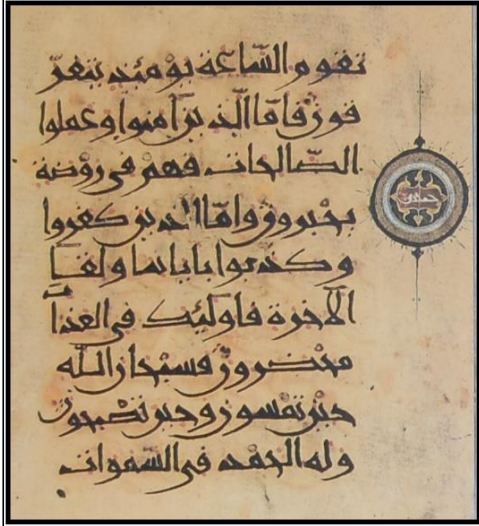 تقوم الساعة يومئذ يتفر
قون فاما الذين آمنوا وعملوا
الصالحات فهم في روضة
يحبرون واما الذين كفروا
وكذبوا باياتنا ولقا
الآخرة فاولئك في العذا
ب
محضرون فسبحان الله
حين تمسون وحين تصبحون
وله الحمد في السموات